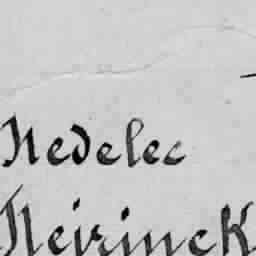 Nedelec
Neirinck